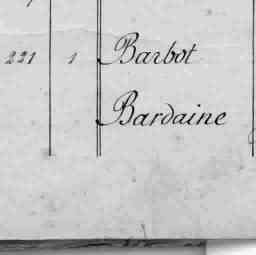 221 1 Barbot
Bardaine